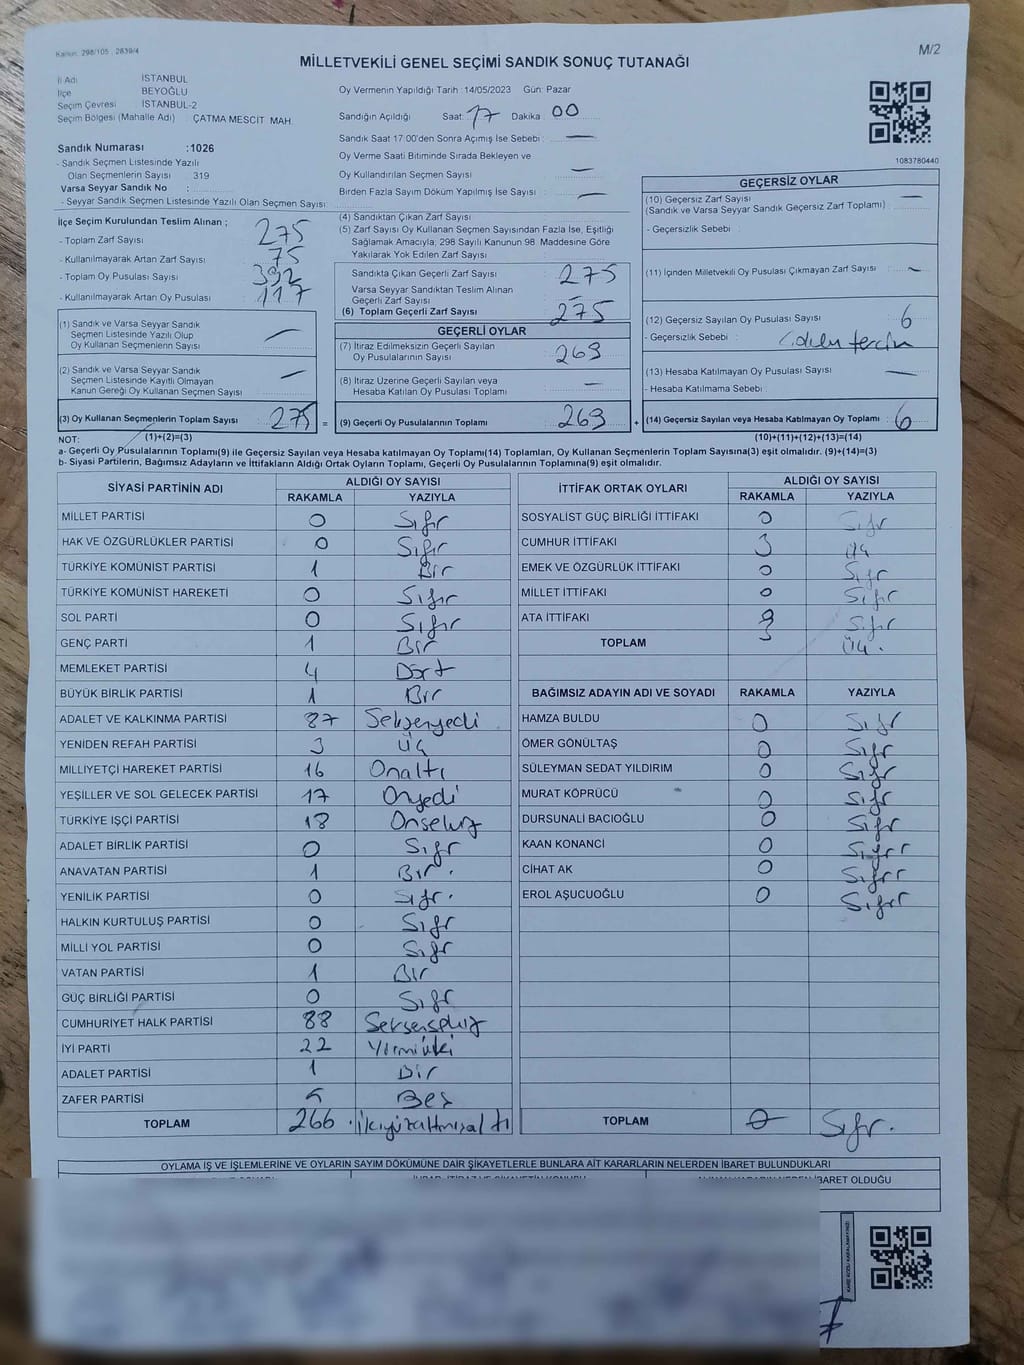 Kanun: 298/105 , 2839/4
M/2
MİLLETVEKİLİ GENEL SEÇİMİ SANDIK SONUÇ TUTANAĞI
İl Adı İSTANBUL
İlçe BEYOĞLU
Seçim Çevresi : İSTANBUL-2
Seçim Bölgesi (Mahalle Adı) : ÇATMA MESCİT MAH.
Sandık Numarası :1026
- Sandık Seçmen Listesinde Yazılı
Olan Seçmenlerin Sayısı : 319
Varsa Seyyar Sandık No :
- Seyyar Sandık Seçmen Listesinde Yazılı Olan Seçmen Sayısı :
Oy Vermenin Yapıldığı Tarih : 14/05/2023 Gün: Pazar
Sandığın Açıldığı Saat: 17 Dakika : 00
Sandık Saat 17:00'den Sonra Açımış İse Sebebi : —
Oy Verme Saati Bitiminde Sırada Bekleyen ve
Oy Kullandırılan Seçmen Sayısı : —
Birden Fazla Sayım Döküm Yapılmış İse Sayısı : —
1083780440
İlçe Seçim Kurulundan Teslim Alınan ;
- Toplam Zarf Sayısı : 275
- Kullanılmayarak Artan Zarf Sayısı : 75
- Toplam Oy Pusulası Sayısı : 392
- Kullanılmayarak Artan Oy Pusulası : 117
(1) Sandık ve Varsa Seyyar Sandık
Seçmen Listesinde Yazılı Olup
Oy Kullanan Seçmenlerin Sayısı : —
(2) Sandık ve Varsa Seyyar Sandık
Seçmen Listesinde Kayıtlı Olmayan
Kanun Gereği Oy Kullanan Seçmen Sayısı : —
(3) Oy Kullanan Seçmenlerin Toplam Sayısı : 275
(4) Sandıktan Çıkan Zarf Sayısı :
(5) Zarf Sayısı Oy Kullanan Seçmen Sayısından Fazla İse, Eşitliği
Sağlamak Amacıyla, 298 Sayılı Kanunun 98. Maddesine Göre
Yakılarak Yok Edilen Zarf Sayısı :
Sandıkta Çıkan Geçerli Zarf Sayısı : 275
Varsa Seyyar Sandıktan Teslim Alınan
Geçerli Zarf Sayısı : —
(6) Toplam Geçerli Zarf Sayısı : 275
GEÇERLİ OYLAR
(7) İtiraz Edilmeksizin Geçerli Sayılan
Oy Pusulalarının Sayısı : 269
(8) İtiraz Üzerine Geçerli Sayılan veya
Hesaba Katılan Oy Pusulası Toplamı : —
= (9) Geçerli Oy Pusulalarının Toplamı : 269
GEÇERSİZ OYLAR
(10) Geçersiz Zarf Sayısı : —
(Sandık ve Varsa Seyyar Sandık Geçersiz Zarf Toplamı)
- Geçersizlik Sebebi :
(11) İçinden Milletvekili Oy Pusulası Çıkmayan Zarf Sayısı : —
(12) Geçersiz Sayılan Oy Pusulası Sayısı : 6
- Geçersizlik Sebebi :
(13) Hesaba Katılmayan Oy Pusulası Sayısı : —
- Hesaba Katılmama Sebebi :
+ (14) Geçersiz Sayılan veya Hesaba Katılmayan Oy Toplamı : 6
NOT: (1)+(2)=(3)
(10)+(11)+(12)+(13)=(14)
a- Geçerli Oy Pusulalarının Toplamı(9) ile Geçersiz Sayılan veya Hesaba katılmayan Oy Toplamı(14) Toplamları, Oy Kullanan Seçmenlerin Toplam Sayısına(3) eşit olmalıdır. (9)+(14)=(3)
b- Siyasi Partilerin, Bağımsız Adayların ve İttifakların Aldığı Ortak Oyların Toplamı, Geçerli Oy Pusulalarının Toplamına(9) eşit olmalıdır.
SİYASİ PARTİNİN ADI ALDIĞI OY SAYISI
RAKAMLA YAZIYLA
MİLLET PARTİSİ 0 Sıfır
HAK VE ÖZGÜRLÜKLER PARTİSİ 0 Sıfır
TÜRKİYE KOMÜNİST PARTİSİ 1 Bir
TÜRKİYE KOMÜNİST HAREKETİ 0 Sıfır
SOL PARTİ 0 Sıfır
GENÇ PARTİ 1 Bir
MEMLEKET PARTİSİ 4 Dört
BÜYÜK BİRLİK PARTİSİ 1 Bir
ADALET VE KALKINMA PARTİSİ 87 Seksenyedi
YENİDEN REFAH PARTİSİ 3 Üç
MİLLİYETÇİ HAREKET PARTİSİ 16 Onaltı
YEŞİLLER VE SOL GELECEK PARTİSİ 17 Onyedi
TÜRKİYE İŞÇİ PARTİSİ 18 Onsekiz
ADALET BİRLİK PARTİSİ 0 Sıfır
ANAVATAN PARTİSİ 1 Bir.
YENİLİK PARTİSİ 0 Sıfır.
HALKIN KURTULUŞ PARTİSİ 0 Sıfır
MİLLİ YOL PARTİSİ 0 Sıfır
VATAN PARTİSİ 1 Bir
GÜÇ BİRLİĞİ PARTİSİ 0 Sıfır
CUMHURİYET HALK PARTİSİ 88 Seksensekiz
İYİ PARTİ 22 Yirmiiki
ADALET PARTİSİ 1 Bir
ZAFER PARTİSİ 5 Beş
TOPLAM 266 ikiyüzaltmışaltı
İTTİFAK ORTAK OYLARI ALDIĞI OY SAYISI
RAKAMLA YAZIYLA
SOSYALİST GÜÇ BİRLİĞİ İTTİFAKI 0 Sıfır
CUMHUR İTTİFAKI 3 Üç
EMEK VE ÖZGÜRLÜK İTTİFAKI 0 Sıfır
MİLLET İTTİFAKI 0 Sıfır
ATA İTTİFAKI Sıfır
TOPLAM 3 Üç.
BAĞIMSIZ ADAYIN ADI VE SOYADI RAKAMLA YAZIYLA
HAMZA BULDU 0 Sıfır
ÖMER GÖNÜLTAŞ 0 Sıfır
SÜLEYMAN SEDAT YILDIRIM 0 Sıfır
MURAT KÖPRÜCÜ 0 Sıfır
DURSUNALİ BACIOĞLU 0 Sıfır
KAAN KONANCİ 0 Sıfır
CİHAT AK 0 Sıfır
EROL AŞUCUOĞLU 0 Sıfır
TOPLAM 0 Sıfır.
OYLAMA İŞ VE İŞLEMLERİNE VE OYLARIN SAYIM DÖKÜMÜNE DAİR ŞİKAYETLERLE BUNLARA AİT KARARLARIN NELERDEN İBARET BULUNDUKLARI
İBARET OLDUĞU